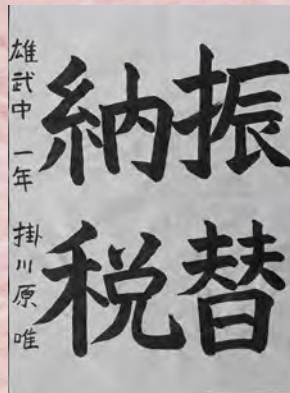 振替
納税
雄武中 一年 掛川原 唯